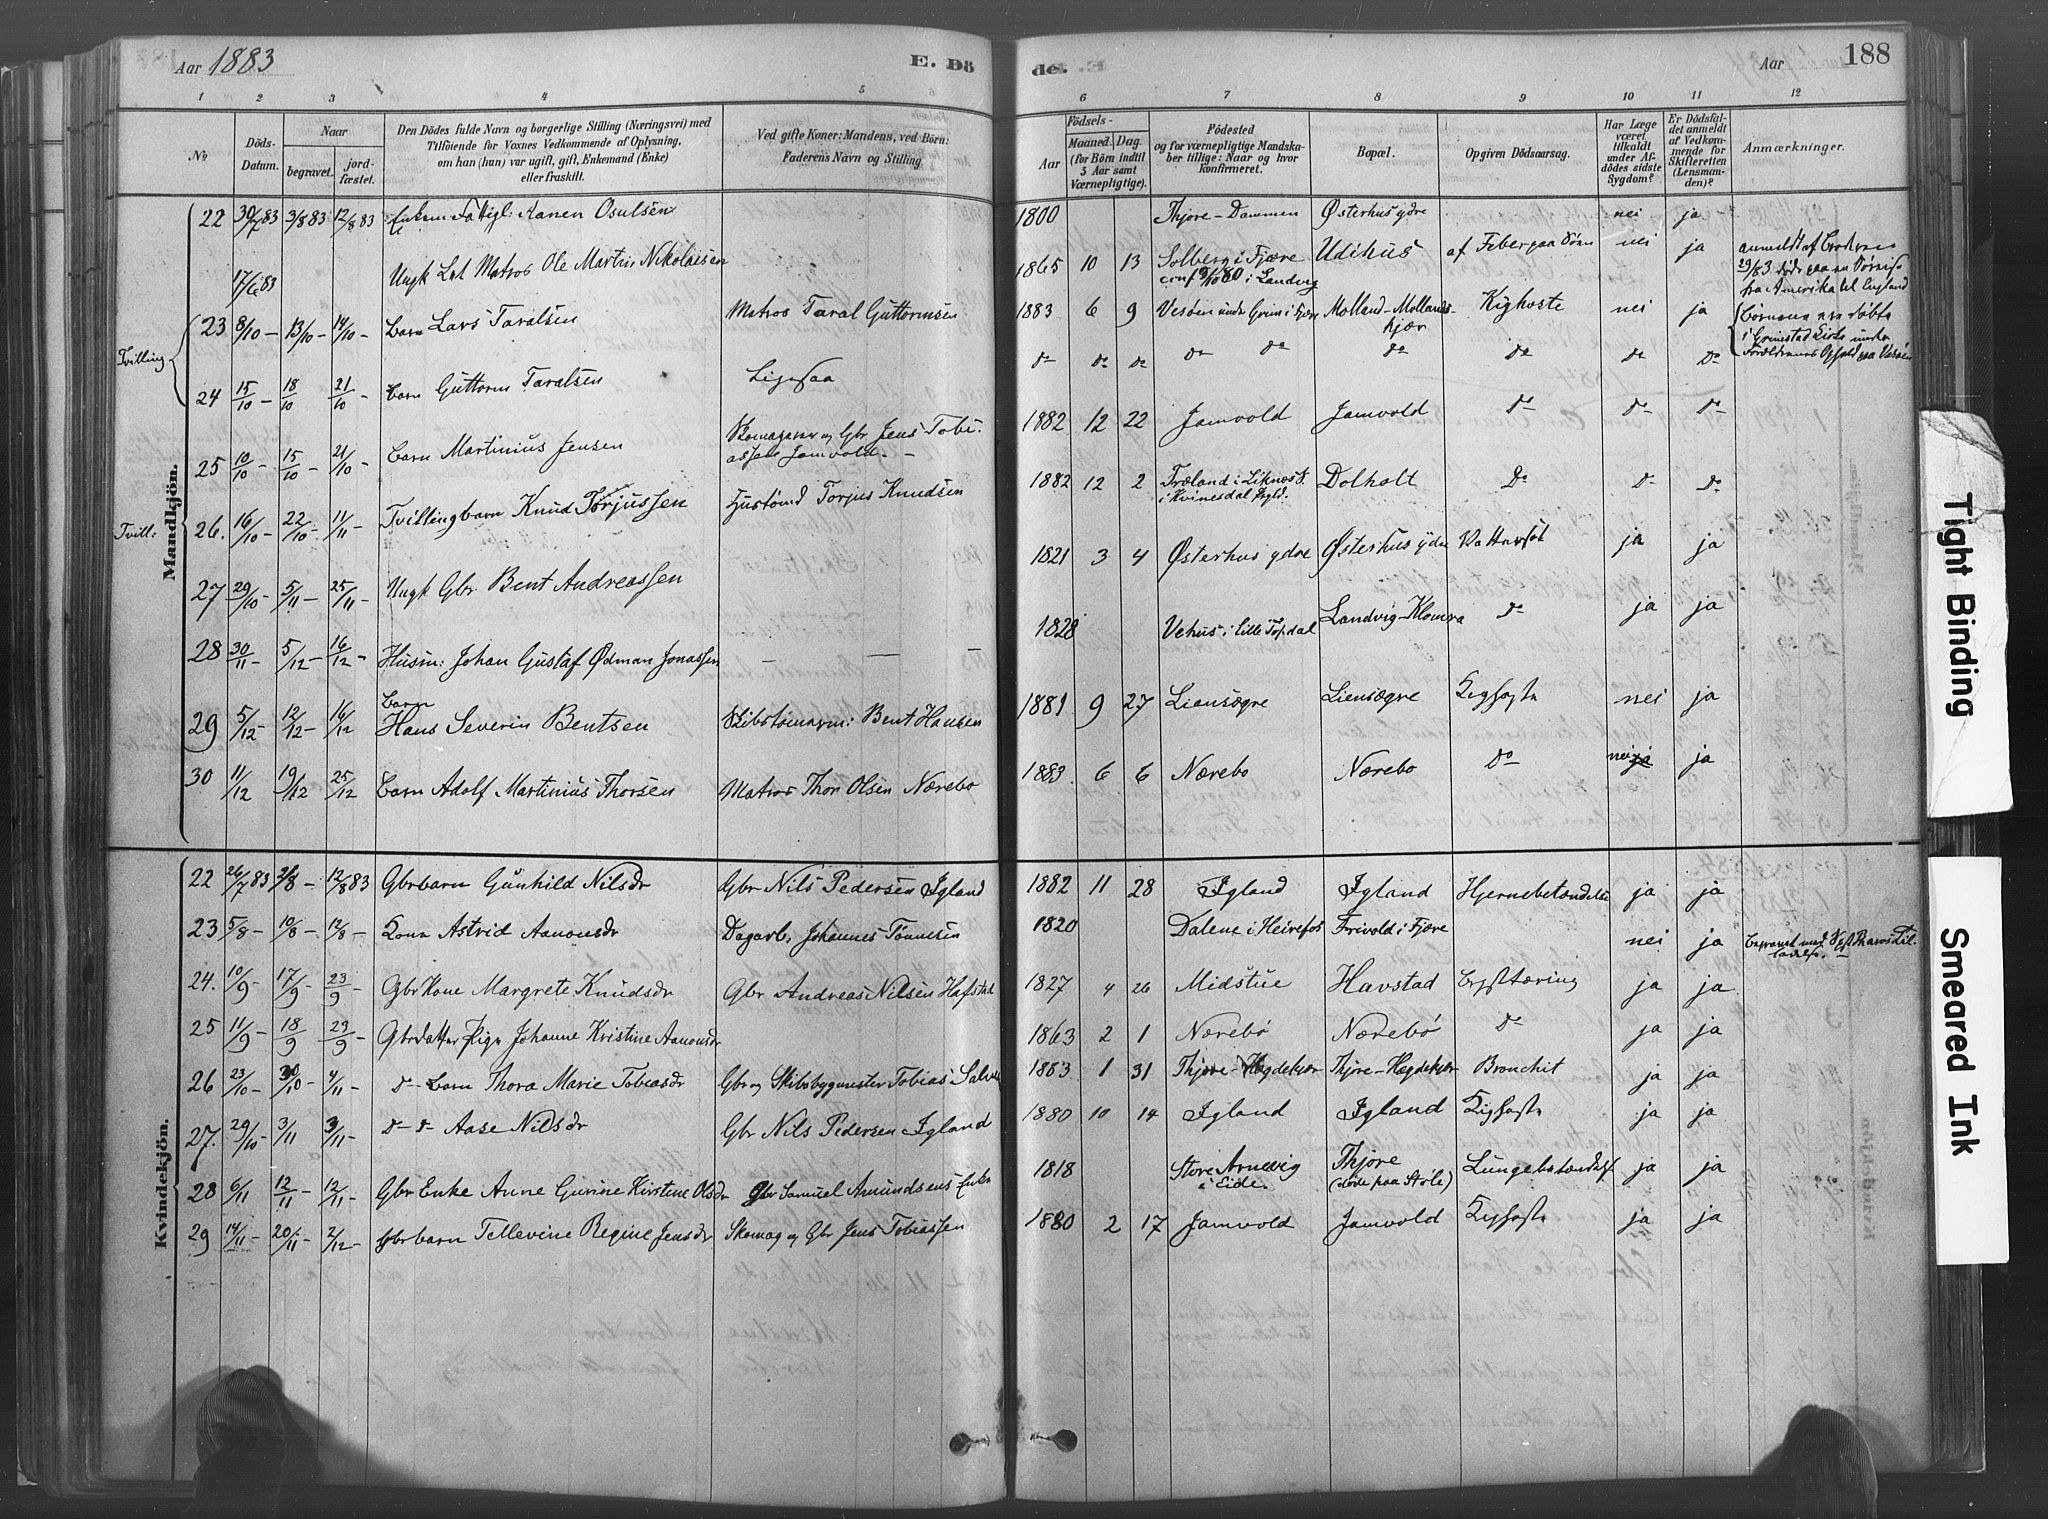 Aar 1883
E. Dö
de.
Aar
188
1 2 3 4 5 6 7 8 9 10 11 12
No
Döds-Datum.
Naar
begravet.
jord-fæstet.
Den Dödes fulde Navn og borgerlige Stilling (Næringsvei) med
Tilföiende for Voxnes Vedkommende af Oplysning,
om han (hun) var ugift, gift, Enkemand (Enke)
eller fraskilt.
Ved gifte Koner: Mandens, ved Börn:
Faderens Navn og Stilling.
Födsels-
Aar
Maaned. Dag.
(for Börn indtil
3 Aar samt
Værnepligtige).
Födested
og for værnepligtige Mandska-
ber tillige: Naar og hvor
konfirmeret.
Bopæl.
Opgiven Dödsaarsag.
Har Læge
været
tilkaldt
under Af-
dödes sidste
Sygdom?
Er Dödsfal-
det anmeldt
af Vedkom-
mende for
Skifteretten
(Lensman-
den)?
Anmærkninger.
Mandkjön.
22 30/7 83 3/8 83 12/8 83 Enkem Aanen Osulsen 1800 Thjore-Dammen Østerhus ydre nei ja
17/6 83 Ungk Ole Martin Nikolaisen 1865 10 13 Solberg i Fjære Udihus af Feber paa nei ja
conf 3/10 80 i Landvig
anmeldt af
fra Amerika til England
Tvilling
23 8/10 – 13/10 – 14/10 – Barn Lars Taralsen Matros Taral Guttormsen 1883 6 9 Vesøen under Grim i Fjære Molland-Mollands-kjær Kighoste nei ja
i Grimstad Kirke under
24 15/10 – 18/10 21/10 – Barn Guttorm Taralsen Ligesaa Do Do Do Do Do Do Do Do Do
25 10/10 – 15/10 – 21/10 – Barn Martinius Jensen og Gbr Jens Tobi-
assen Jamvold. – 1882 12 22 Jamvold Jamvold Do Do Do
Tvill:
26. 16/10 – 22/10 – 11/11 – Tvillingbarn Knud Torjussen Torjus Knudsen 1882 12 2 Træland i Liknes S. Dolholt Do Do Do
i Kvinesdal
27 29/10 – 5/11 – 25/11 – Ungk Gbr Bent Andreassen 1821 3 4 Østerhus ydre Østerhus ydre Vattersot ja ja
28 30/11 – 5/12 – 16/12 – Husm: Johan Gustaf Ødman Jonassen – – – 1828 Vehus i Lille Topdal Landvig- Do ja ja
29 5/12 – 12/12 – 16/12 Barn Hans Severin Bentsen Skibstømrm: Bent Hansen 1881 9 27 Liensøgre Liensøgre Kighoste nei ja
30 11/12 19/12 25/12 Barn Adolf Martinius Thorsen Matros Thor Olsen Nærebo 1883. 6 6 Nærebo Nærebo Do nei ja ja
Kvindekjön.
22 26/7 83 2/8 – 12/8 83 Gbrbarn Gunhild Nilsdr Gbr Nils Pedersen Igland 1882 11 28 Igland Igland Hjernebetændelse ja ja
23 5/8 – 10/8 – 12/8 – Kone Astrid Aanonsdr Dagarb. Johannes Tønnesen 1820 Dalene i Heirefos Frivold i Fjære nei ja
24. 10/9 – 17/9 – 23/9 – Gbr Kone Margrete Knudsdr Gbr Andreas Nilsen Hafstad 1827 4 26 Midstue Havstad Brysttæring ja ja
25 11/9 – 18/9 23/9 – Gbrdatter Pige Johanne Kristine Aanonsdr 1863 2 1 Nærebø Nærebø Do ja ja
26 23/10 – 30/10 – 4/11 – Do Barn Thora Marie Tobiasdr Gbr og Skibsbygmester Tobias 1883 1 31 Thjore-Høgdekjær Thjore-Høgdekjær Bronchit ja ja
27. 29/10 – 3/11 3/11 – Do Do Aase Nilsdr Gbr Nils Pedersen Igland 1880 10 14 Igland Igland Kighoste ja ja
28 6/11 12/11 – 12/11 – Gbr Enke Anne Gurine Kirstine Olsdr Gbr Samuel Amundsens Enke 1818 Store Arnevig Thjore Lungebetændelse ja ja
i Eide. (døde paa Støle)
29 14/11 – 20/11 – 2/12 – Gbrbarn Tellevine Regine Jensdr Skomag og Gbr Jens Tobiassen 1880 2 17 Jamvold Jamvold Kighoste ja ja
Tight Binding
Smeared Ink